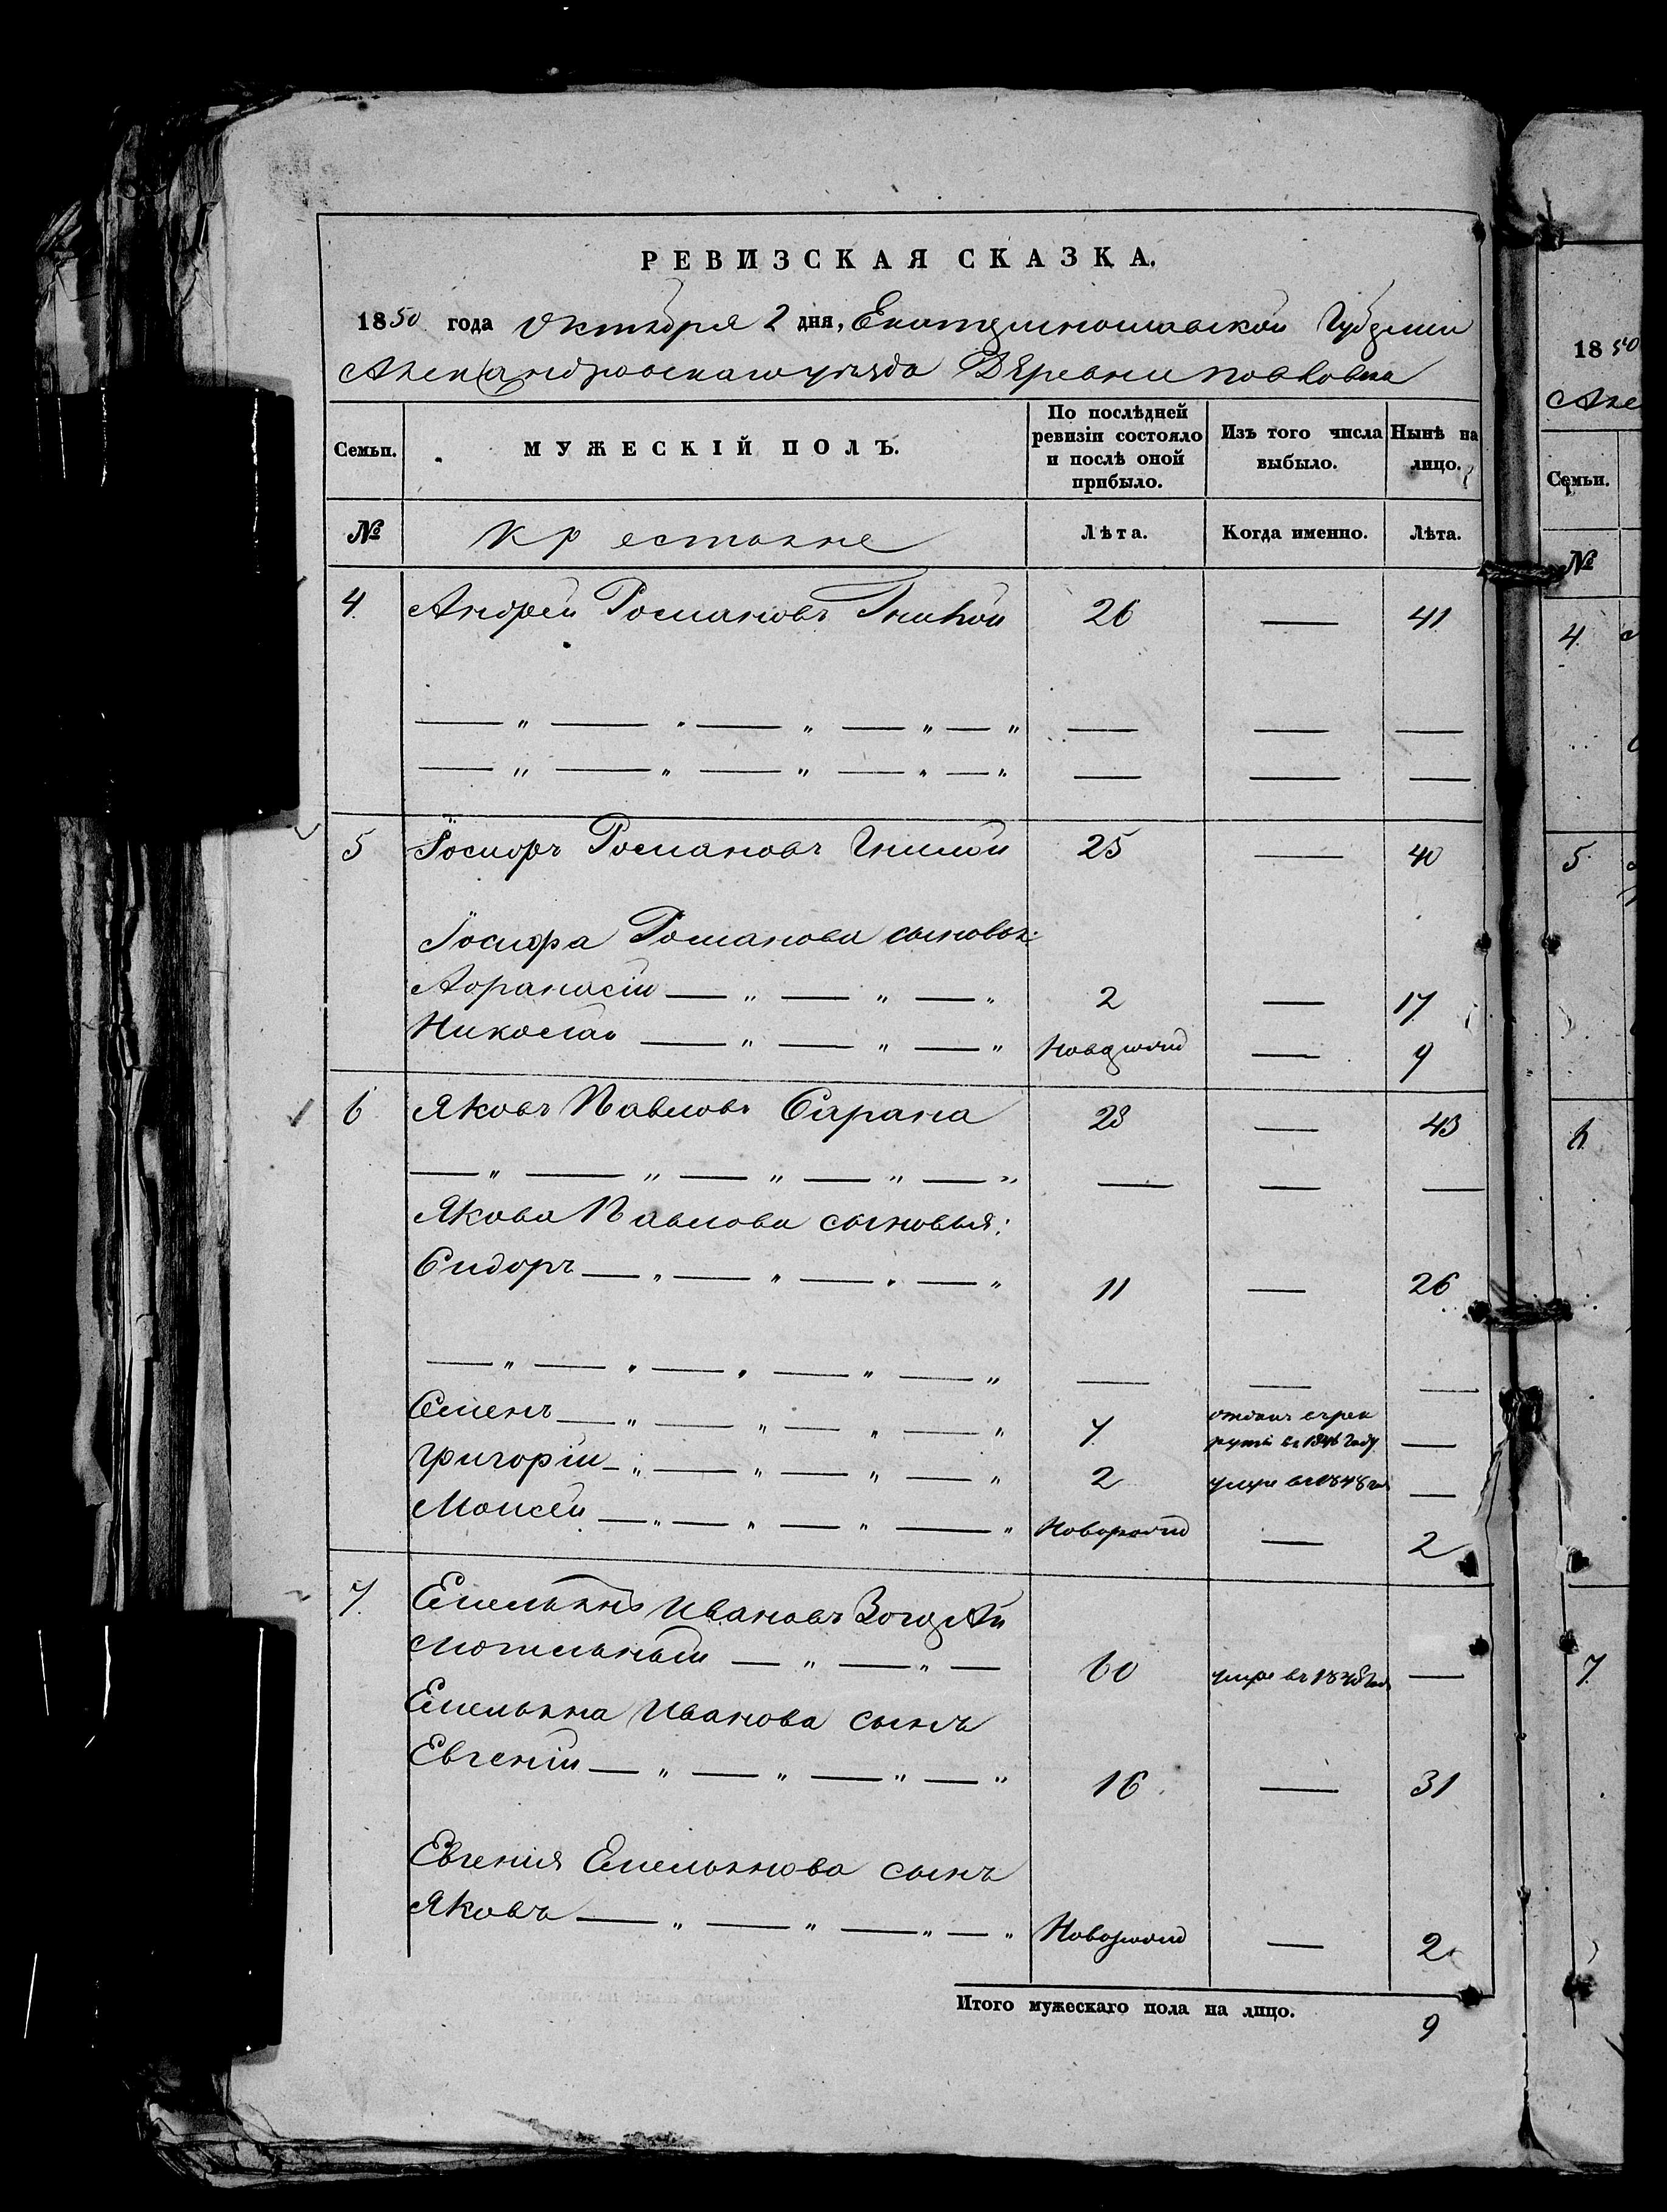 РЕВИЗСКАЯ СКАЗКА.
1850 года Октября 2 дня, Екатеринославской Губернии
Александровскаго уѣзда Деревни Павловка
Семьи. МУЖЕСКІЙ ПОЛЪ. По послѣдней ревизіи состояло и послѣ оной прибыло. Изъ того числа выбыло. Нынѣ на лицо.
№ Крестьяне Лѣта. Когда именно. Лѣта.
4. Андрей Романовъ Гнилой 26 — 41
— " — " — " — " — " — — —
— " — " — " — " — " — — —
5 Іосифъ Романовъ Гнилой 25 — 40
Іосифа Романова сыновья:
Афранасій — " — " — " 2 — 17
Николай — " — " — " Новорожд — 9
6 Яковъ Павловъ Сарана 28 — 43
— " — " — " — " — " — — —
Якова Павлова сыновья:
Сидоръ — " — " — " — " 11 — 26
— " — " — " — " — " — — —
Семенъ — " — " — " — " 7 отданъ въ рек
руты въ 1846 году —
Григорій — " — " — " — " 2 умре въ 1848 год —
Моисей — " — " — " — " Новорожд — 2
7. Емельянъ Ивановъ
Мотильный — " — " — 60 умре въ 1848 год —
Емельяна Иванова сынъ
Евгеній — " — " — " — " 16 — 31
Евгенія Емельянова сынъ
Яковъ — " — " — " — " Новорожд — 2
Итого мужескаго пола на лицо. 9
1850
Але
Семьи.
№
4.
5.
6.
7.